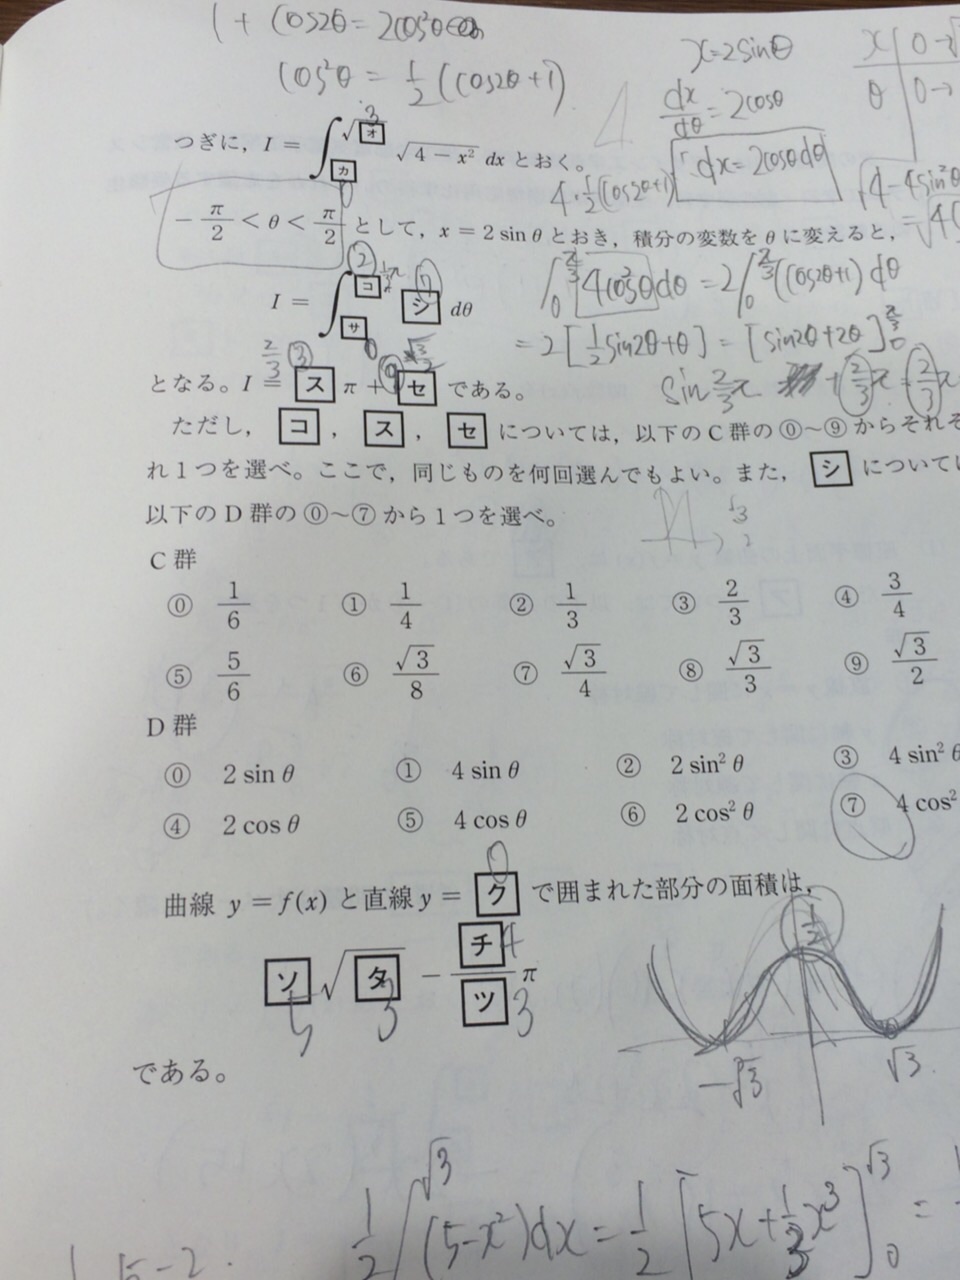 1 + cos2θ = 2cos²θ
cos²θ = 1/2 (cos2θ+1)
x=2sinθ
dx/dθ = 2cosθ
∴dx=2cosθdθ
x 0→√
θ 0→
つぎに，I = ∫[カ]^√[オ] √(4−x²) dx とおく。
3
4・1/2(cos2θ+1)
√4−4sin²θ
=√4(
−π/2 < θ < π/2 として，x = 2 sin θ とおき，積分の変数を θ に変えると，
I = ∫[サ]^[コ] [シ] dθ
② ⑦ 0
∫0^π/3 4cos²θdθ = 2∫0^π/3 (cos2θ+1)dθ
= 2[1/2 sin2θ+θ] = [sin2θ+2θ]0^π/3
2/3 ③ ⑨ √3/2
となる。I = [ス] π + [セ] である。
sin 2/3π + 2/3π = 2/3π
ただし，[コ]，[ス]，[セ] については，以下のC群の⓪～⑨からそれぞ
れ１つを選べ。ここで，同じものを何回選んでもよい。また，[シ] については
以下のD群の⓪～⑦から１つを選べ。
√3
C群
⓪ 1/6 ① 1/4 ② 1/3 ③ 2/3 ④ 3/4
⑤ 5/6 ⑥ √3/8 ⑦ √3/4 ⑧ √3/3 ⑨ √3/2
D群
⓪ 2 sin θ ① 4 sin θ ② 2 sin² θ ③ 4 sin² θ
④ 2 cos θ ⑤ 4 cos θ ⑥ 2 cos² θ ⑦ 4 cos²
曲線 y = f(x) と直線 y = [ク] で囲まれた部分の面積は，
0
[ソ]√[タ] − [チ]/[ツ] π
5 3 4 3
1/2
−√3 √3
である。
1/2 ∫^√3 (5−x²)dx = 1/2 [5x+1/3x³]0^√3 =